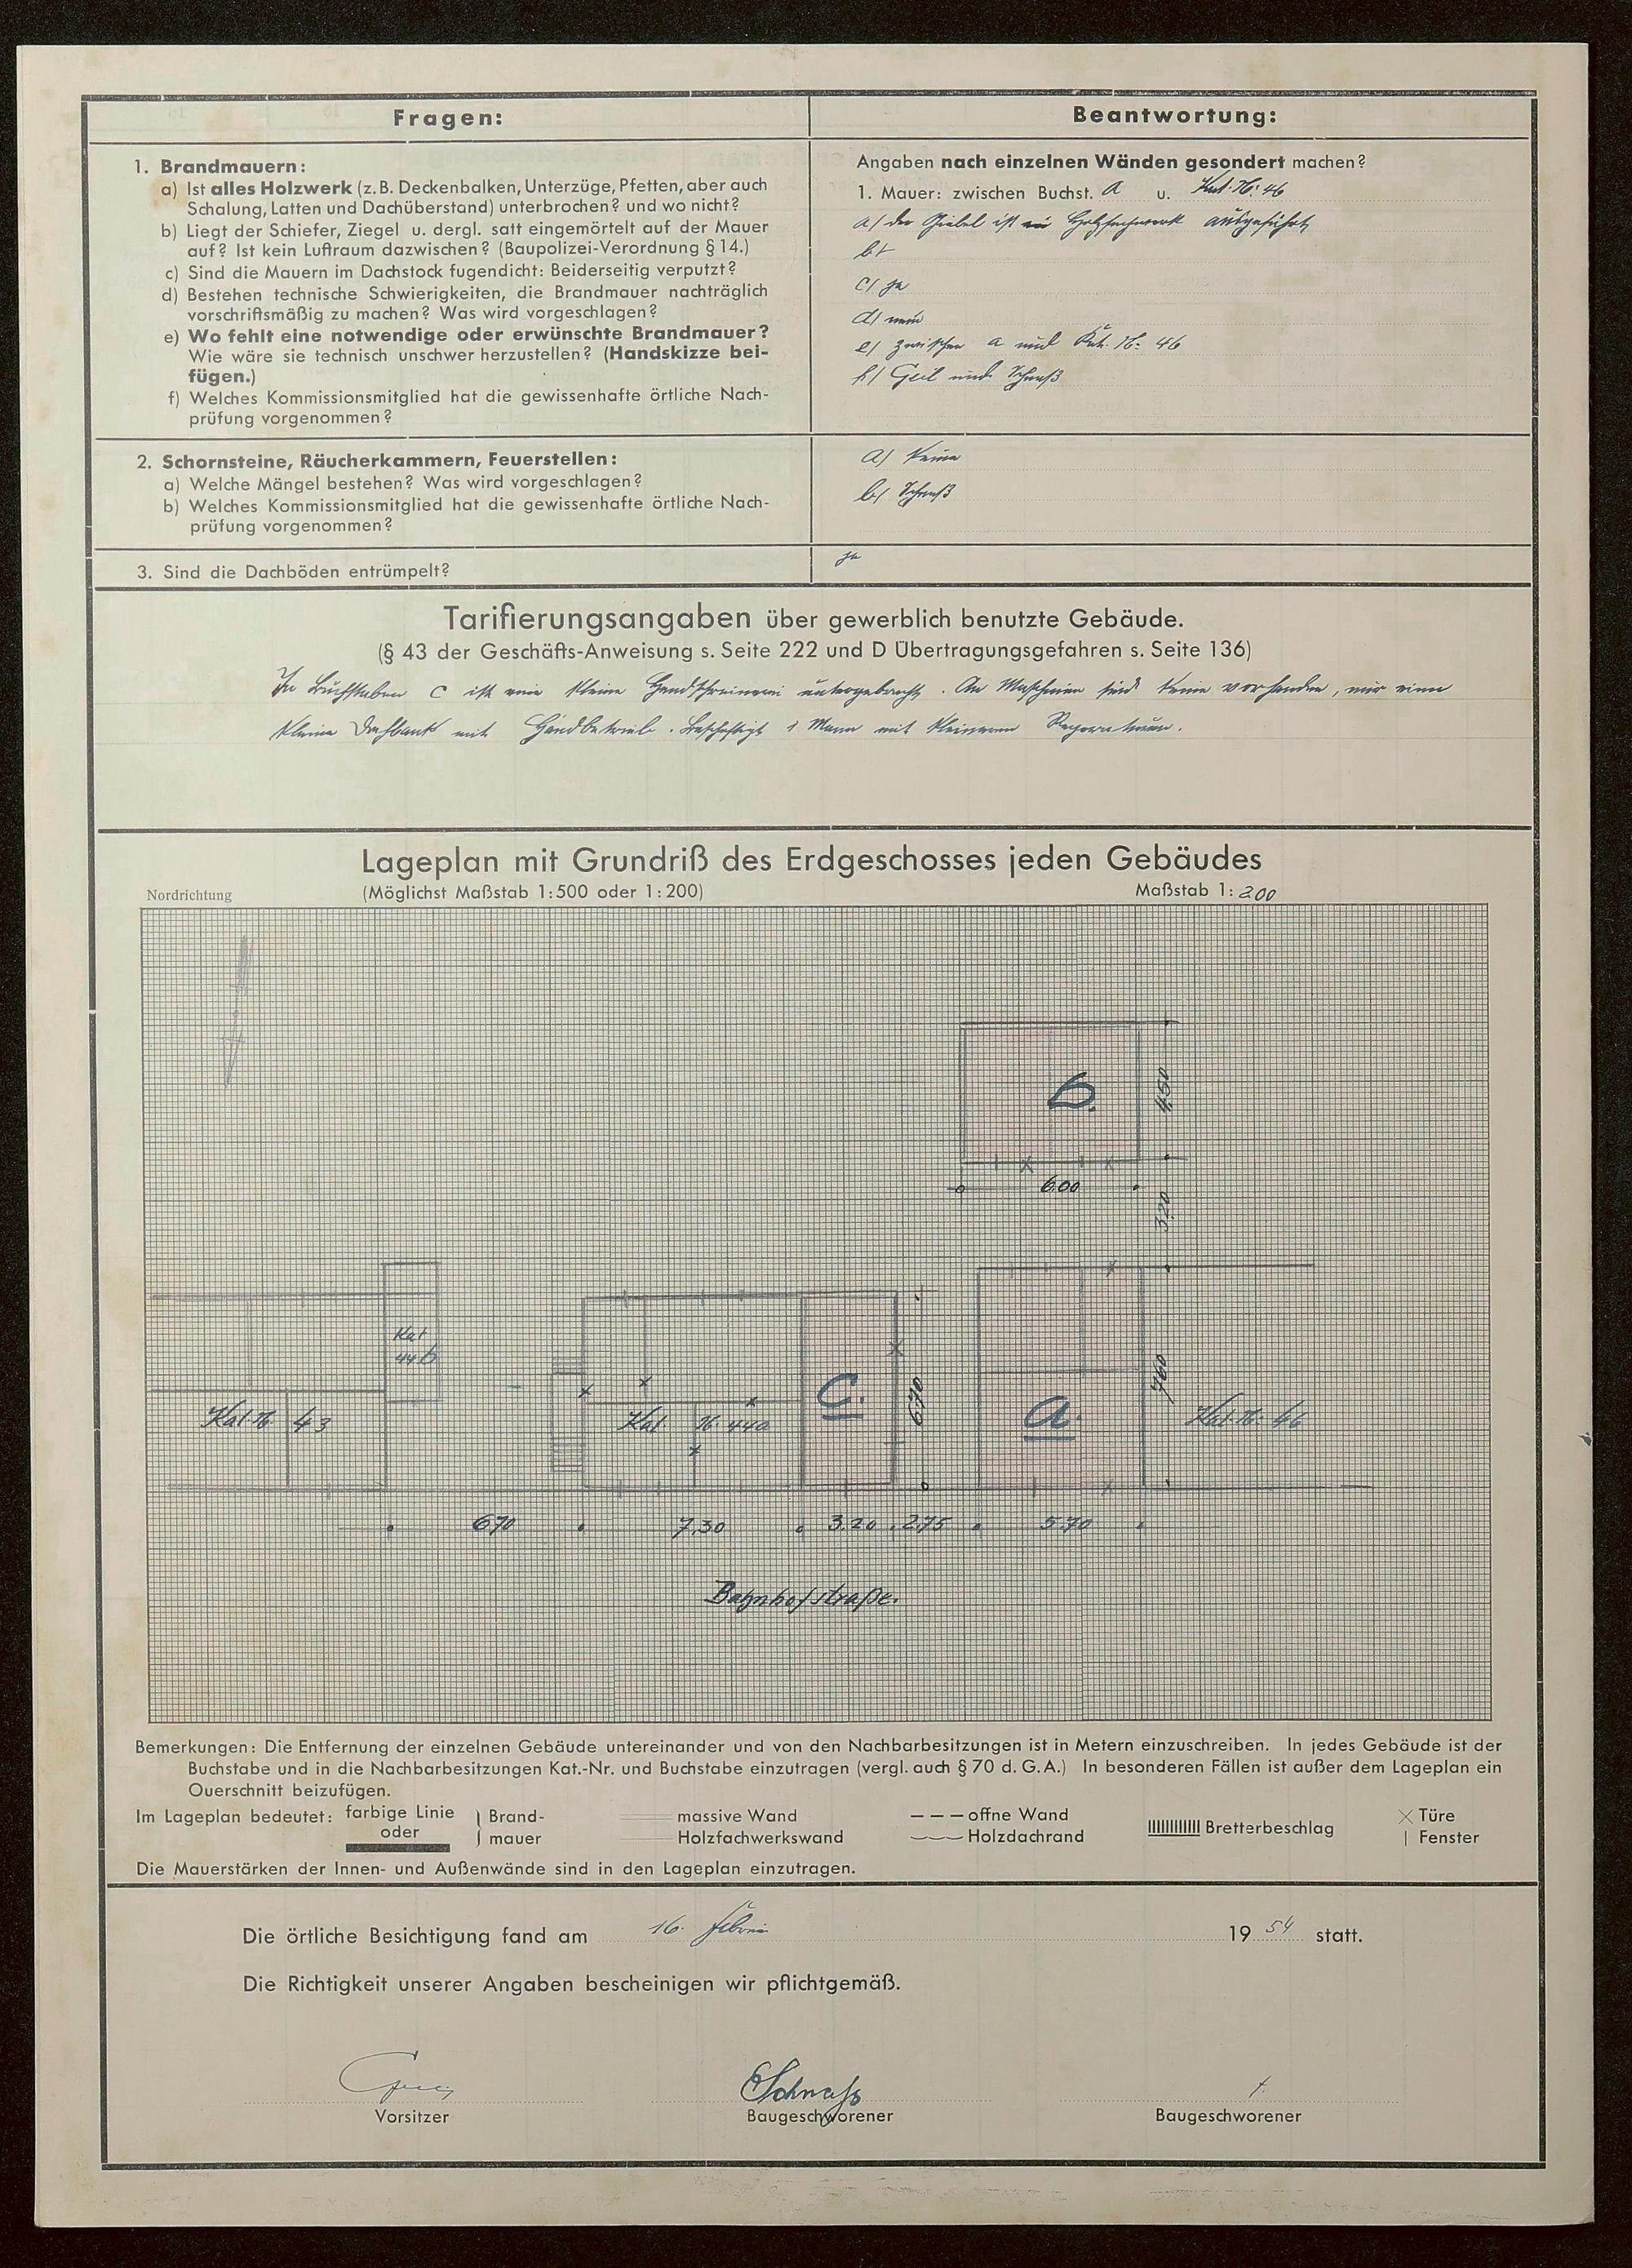 Fragen:
Beantwortung:
1. Brandmauern:
a) Ist alles Holzwerk (z. B. Deckenbalken, Unterzüge, Pfetten, aber auch
Schalung, Latten und Dachüberstand) unterbrochen? und wo nicht?
b) Liegt der Schiefer, Ziegel u. dergl. satt eingemörtelt auf der Mauer
auf? Ist kein Luftraum dazwischen? (Baupolizei-Verordnung § 14.)
c) Sind die Mauern im Dachstock fugendicht: Beiderseitig verputzt?
d) Bestehen technische Schwierigkeiten, die Brandmauer nachträglich
vorschriftsmäßig zu machen? Was wird vorgeschlagen?
e) Wo fehlt eine notwendige oder erwünschte Brandmauer?
Wie wäre sie technisch unschwer herzustellen? (Handskizze bei-
fügen.)
f) Welches Kommissionsmitglied hat die gewissenhafte örtliche Nach-
prüfung vorgenommen?
Angaben nach einzelnen Wänden gesondert machen?
1. Mauer: zwischen Buchst. A u. Kat. N: 46
a/ der Giebel ist in Holzfachwerk ausgeführt
b/
c/ ja
d/ nein
e/ zwischen a und Kat. N: 46
f/ und Schnaß
2. Schornsteine, Räucherkammern, Feuerstellen:
a) Welche Mängel bestehen? Was wird vorgeschlagen?
b) Welches Kommissionsmitglied hat die gewissenhafte örtliche Nach-
prüfung vorgenommen?
a/ keine
b/ Schnaß
3. Sind die Dachböden entrümpelt?
ja
Tarifierungsangaben über gewerblich benutzte Gebäude.
(§ 43 der Geschäfts-Anweisung s. Seite 222 und D Übertragungsgefahren s. Seite 136)
In Buchstaben C ist eine kleine Handschreinerei untergebracht. An Maschinen sind keine vorhanden, nur eine
kleine Drehbank mit Handbetrieb. Beschäftigt 1 Mann mit kleineren Reparaturen.
Lageplan mit Grundriß des Erdgeschosses jeden Gebäudes
Nordrichtung
(Möglichst Maßstab 1:500 oder 1:200)
Maßstab 1: 200
b.
4.50
6.00
3.20
Kat
44 b
Kat. N. 43
Kat. N. 44a
C.
6.70
a.
7.60
Kat. N: 46
6.70
7.30
3.20
2.75
5.70
Bahnhofstraße.
Bemerkungen: Die Entfernung der einzelnen Gebäude untereinander und von den Nachbarbesitzungen ist in Metern einzuschreiben. In jedes Gebäude ist der
Buchstabe und in die Nachbarbesitzungen Kat.-Nr. und Buchstabe einzutragen (vergl. auch § 70 d. G.A.) In besonderen Fällen ist außer dem Lageplan ein
Querschnitt beizufügen.
Im Lageplan bedeutet: farbige Linie oder } Brandmauer
massive Wand
Holzfachwerkswand
offne Wand
Holzdachrand
Bretterbeschlag
Türe
Fenster
Die Mauerstärken der Innen- und Außenwände sind in den Lageplan einzutragen.
Die örtliche Besichtigung fand am 16. Februar 19 54 statt.
Die Richtigkeit unserer Angaben bescheinigen wir pflichtgemäß.
Schnaß
Vorsitzer
Baugeschworener
Baugeschworener